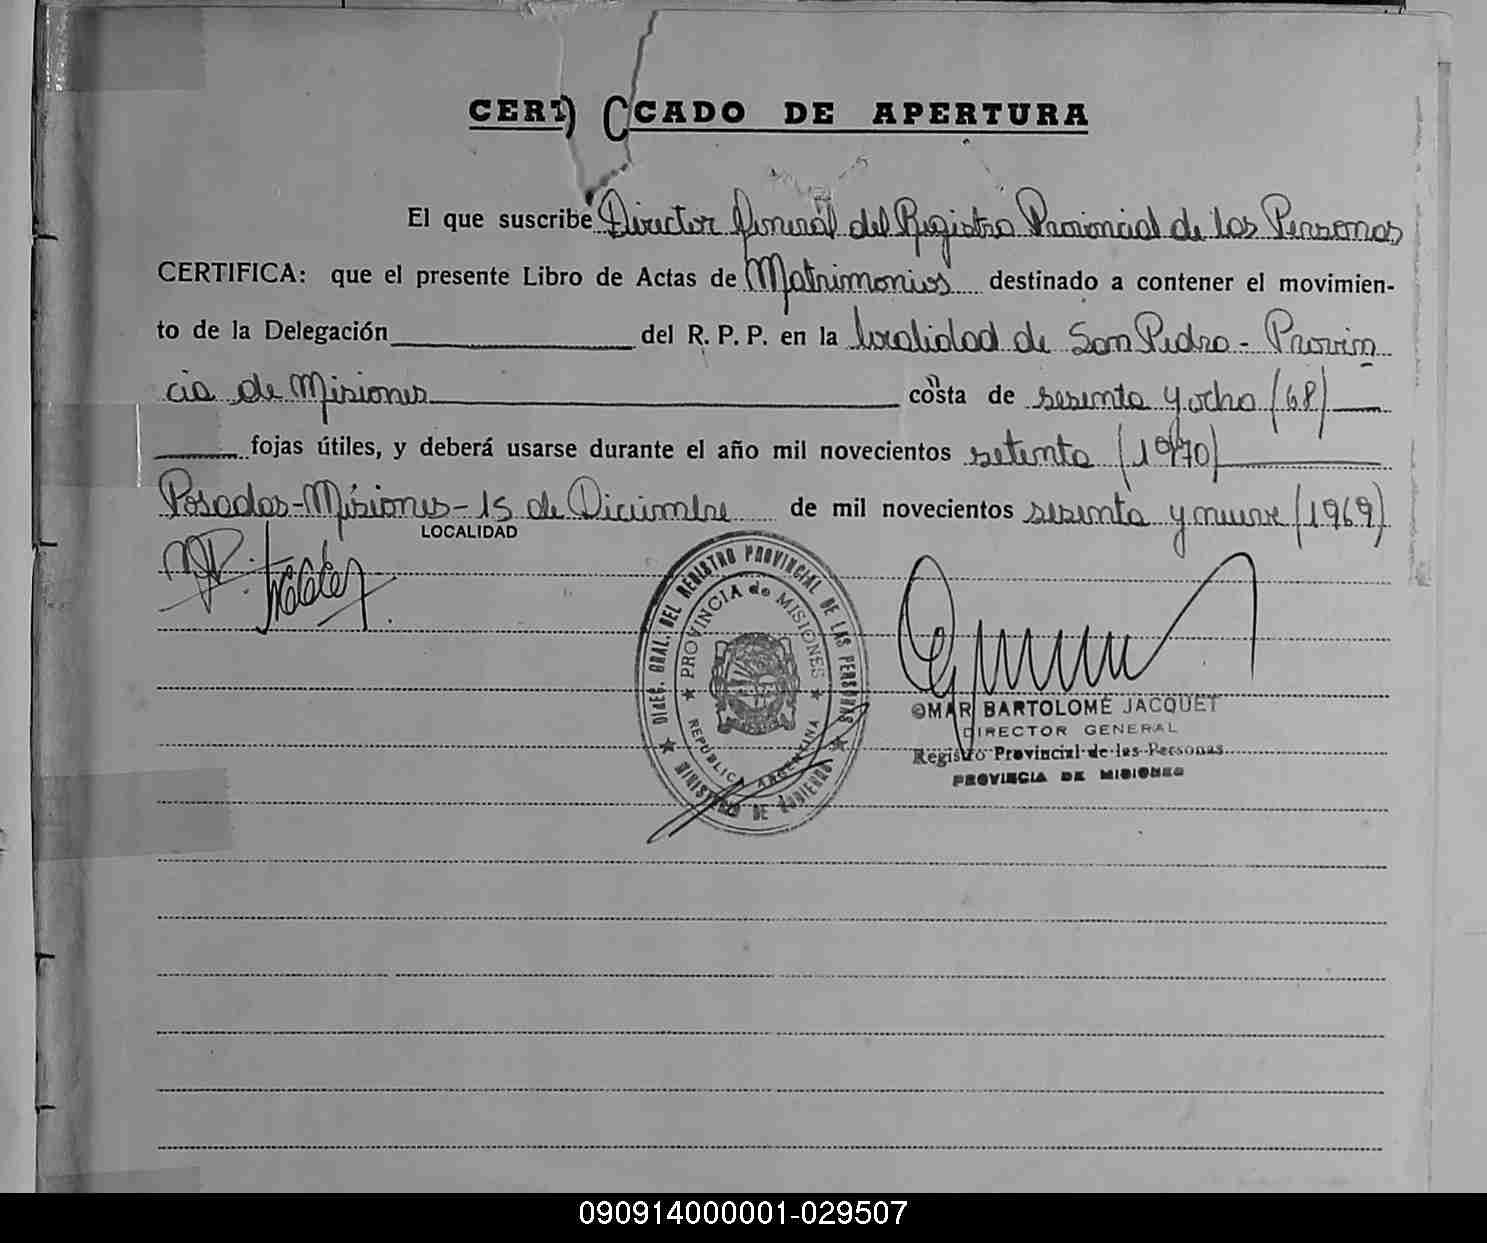 CERTI CADO DE APERTURA
El que suscribe Director General del Registro Provincial de las Personas
CERTIFICA: que el presente Libro de Actas de Matrimonios destinado a contener el movimien-
to de la Delegación del R. P. P. en la localidad de San Pedro - Provin
cia de Misiones consta de sesenta y ocho (68)
fojas útiles, y deberá usarse durante el año mil novecientos setenta (1970)
Posadas - Misiones - 15 de Diciembre de mil novecientos sesenta y nueve (1969)
LOCALIDAD
DIREC. GRAL. DEL REGISTRO PROVINCIAL DE LAS PERSONAS
PROVINCIA de MISIONES
REPUBLICA ARGENTINA
MINISTERIO DE GOBIERNO
OMAR BARTOLOMÉ JACQUET
DIRECTOR GENERAL
Registro Provincial de las Personas
PROVINCIA DE MISIONES
090914000001-029507